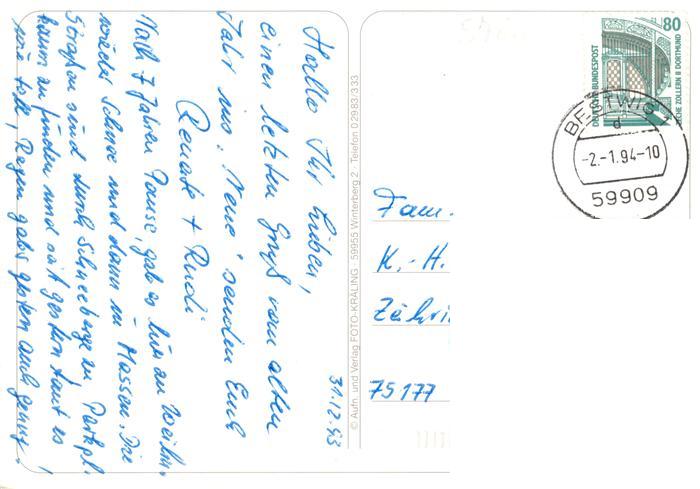 31.12.93
Hallo Ihr Lieben,
einen letzten Gruß vom alten
Jahr ins "Neue" senden Euch
Renate + Rudi
Nach 7 Jahren Pause, gab es hier zu Weihn.
wieder Schnee und dann in Massen. Die
Straßen sind durch Schneeberge zu Parkpl.
kaum zu finden und seit gestern taut es
wie toll, Regen gabs gestern auch genug!
© Aufn. und Verlag FOTO-KRALING · 59955 Winterberg 2 · Telefon 02983/333
80
DEUTSCHE BUNDESPOST
ZECHE ZOLLERN II DORTMUND
BESTWIG
d
-2.-1.94-10
59909
Fam.
K.-H.
Zähri
75177